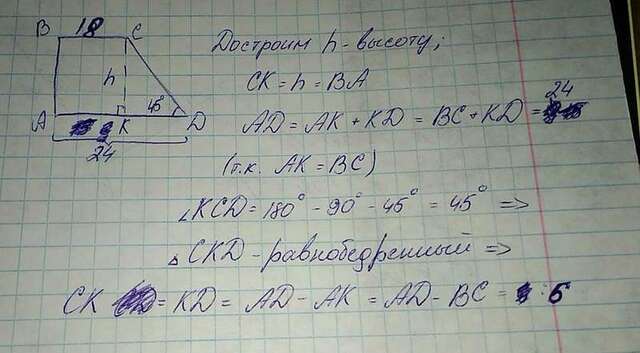 B 18 C
h
45°
A K D
24
Достроим h-высоту;
CK = h = BA
AD = AK + KD = BC + KD = 24
(т.к. AK = BC)
∠KCD = 180° - 90° - 45° = 45° =>
△CKD - равнобедренный =>
CK = KD = AD - AK = AD - BC = 6